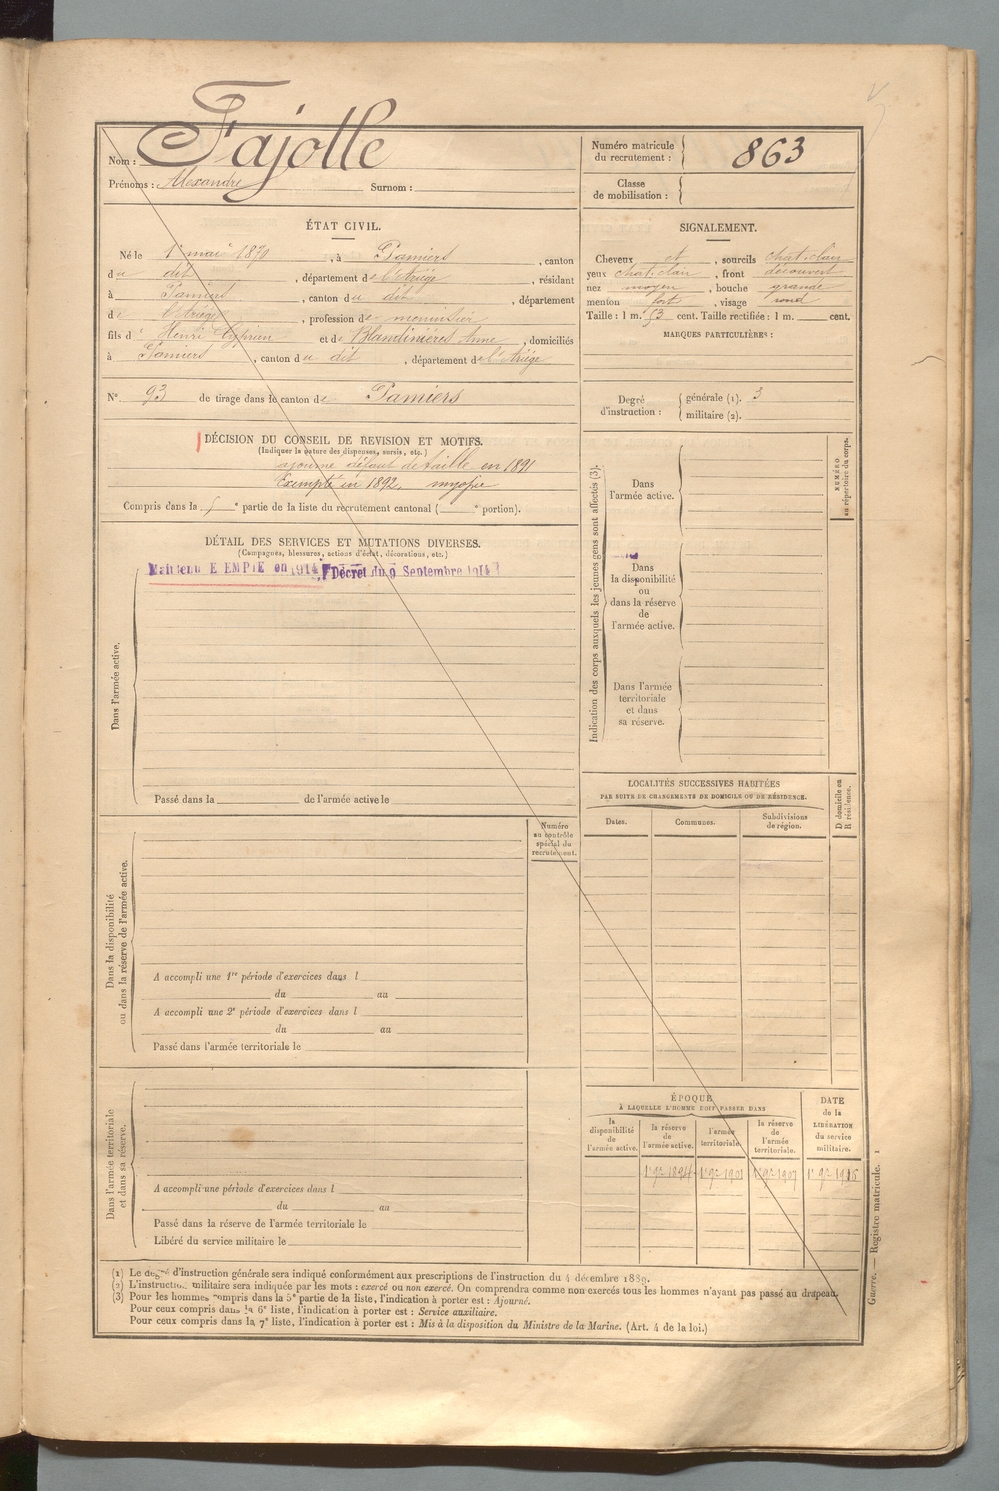 Nom : Fajolle
Prénoms : Alexandre Surnom :
Numéro matricule du recrutement : 863
Classe de mobilisation :
ÉTAT CIVIL.
Né le 1er mai 1870, à Pamiers, canton
du dit, département de l'Ariège, résidant
à Pamiers, canton du dit, département
de l'Ariège, profession de menuisier
fils d' Henri Cyprien et de Blandinières Anne, domiciliés
à Pamiers, canton du dit, département de l'Ariège
N° 93 de tirage dans le canton de Pamiers
SIGNALEMENT.
Cheveux et, sourcils chat. clair
yeux chat. clair, front découvert
nez moyen, bouche grande
menton fort, visage rond
Taille : 1 m. 53 cent. Taille rectifiée : 1 m. cent.
MARQUES PARTICULIÈRES :
Degré d'instruction : générale (1). 3
militaire (2).
DÉCISION DU CONSEIL DE REVISION ET MOTIFS.
(Indiquer la nature des dispenses, sursis, etc.)
ajourné défaut de taille en 1891
Exempté en 1892. myopie
Compris dans la e partie de la liste du recrutement cantonal ( e portion).
DÉTAIL DES SERVICES ET MUTATIONS DIVERSES.
(Campagnes, blessures, actions d'éclat, décorations, etc.)
Maintenu EXEMPTÉ en 1914, Décret du 9 Septembre 1914
Dans l'armée active.
Passé dans la de l'armée active le
Indication des corps auxquels les jeunes gens sont affectés (3).
Dans l'armée active.
Dans la disponibilité ou dans la réserve de l'armée active.
Dans l'armée territoriale et dans sa réserve.
NUMÉRO au répertoire du corps.
LOCALITÉS SUCCESSIVES HABITÉES
PAR SUITE DE CHANGEMENTS DE DOMICILE OU DE RÉSIDENCE.
Dates. Communes. Subdivisions de région.
D domicile ou R résidence.
Dans la disponibilité ou dans la réserve de l'armée active.
Numéro au contrôle spécial du recrutement.
A accompli une 1re période d'exercices dans l
du au
A accompli une 2e période d'exercices dans l
du au
Passé dans l'armée territoriale le
Dans l'armée territoriale et dans sa réserve.
A accompli une période d'exercices dans l
du au
Passé dans la réserve de l'armée territoriale le
Libéré du service militaire le
ÉPOQUE
À LAQUELLE L'HOMME DOIT PASSER DANS
la disponibilité de l'armée active.
la réserve de l'armée active.
l'armée territoriale.
la réserve de l'armée territoriale.
DATE de la LIBÉRATION du service militaire.
1er 9bre 1894 1er 9bre 1901 1er 9bre 1907 1er 9bre 1916
(1) Le degré d'instruction générale sera indiqué conformément aux prescriptions de l'instruction du 4 décembre 1889.
(2) L'instruction militaire sera indiquée par les mots : exercé ou non exercé. On comprendra comme non exercés tous les hommes n'ayant pas passé au drapeau.
(3) Pour les hommes compris dans la 5e partie de la liste, l'indication à porter est : Ajourné.
Pour ceux compris dans la 6e liste, l'indication à porter est : Service auxiliaire.
Pour ceux compris dans la 7e liste, l'indication à porter est : Mis à la disposition du Ministre de la Marine. (Art. 4 de la loi.)
Guerre. — Registre matricule. 1